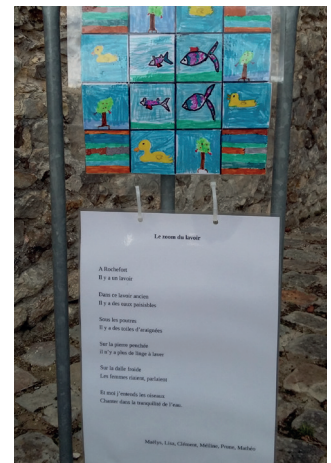 Le renom du lavoir
A Rochefort
Il y a un lavoir
Dans ce lavoir ancien
Il y a des eaux paisibles
Sous les poutres
Il y a des toiles d'araignées
Sur la pierre penchée
il n'y a plus de linge à laver
Sur la dalle froide
Les femmes riaient, parlaient
Et moi j'entends les oiseaux
Chanter dans la tranquillité de l'eau.
Maëlys, Lisa, Clément, Méline, Pierre, Mathéo